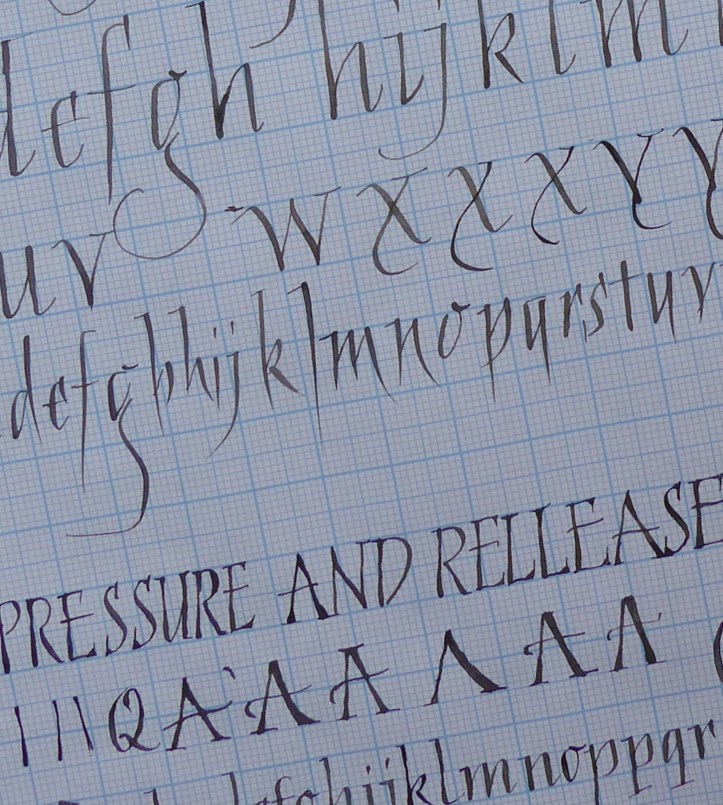 defgh hijklm
uv w x x x y y
defghhijklmnopqrstuv
PRESSURE AND RELLEASE
I I I Q A A A Λ A A
fghijklmnoppqr